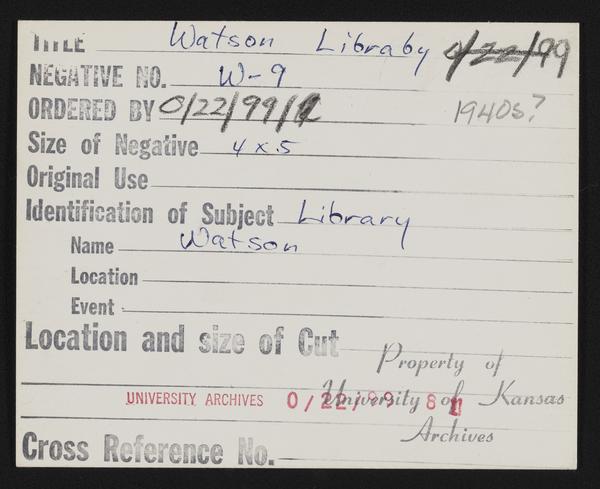 TITLE Watson Libraby 0/22/99
NEGATIVE NO. W-9
ORDERED BY 0/22/99/1 1940s?
Size of Negative 4 x 5
Original Use
Identification of Subject Library
Name Watson
Location
Event
Location and size of Cut
Property of
University of Kansas
Archives
UNIVERSITY ARCHIVES 0/22/99 8
Cross Reference No.